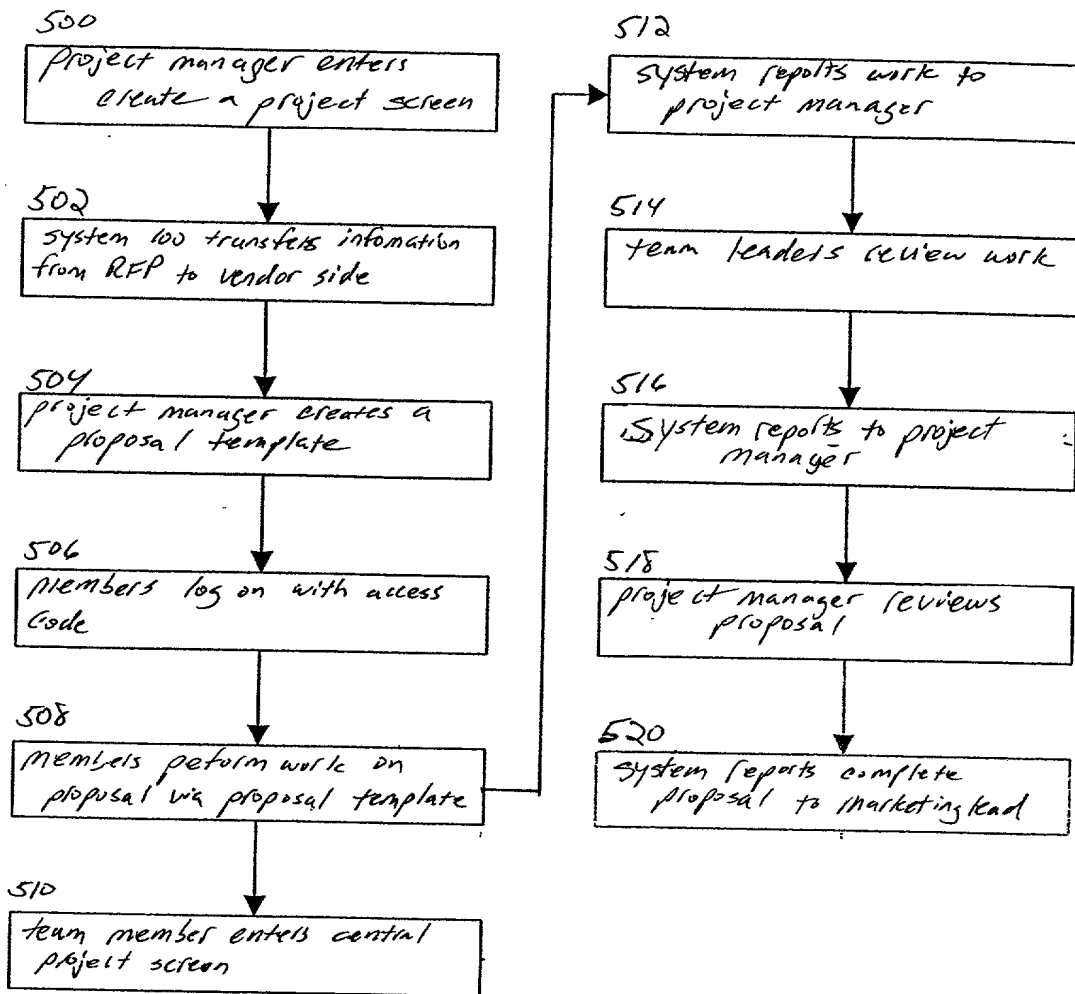 500
project manager enters
create a project screen
502
system 100 transfers infomation
from RFP to vendor side
504
project manager creates a
proposal template
506
members log on with access
code
508
members peform work on
proposal via proposal template
510
team member enters central
project screen
512
system reports work to
project manager
514
team leaders review work
516
system reports to project
manager
518
project manager reviews
proposal
520
system reports complete
proposal to marketing lead